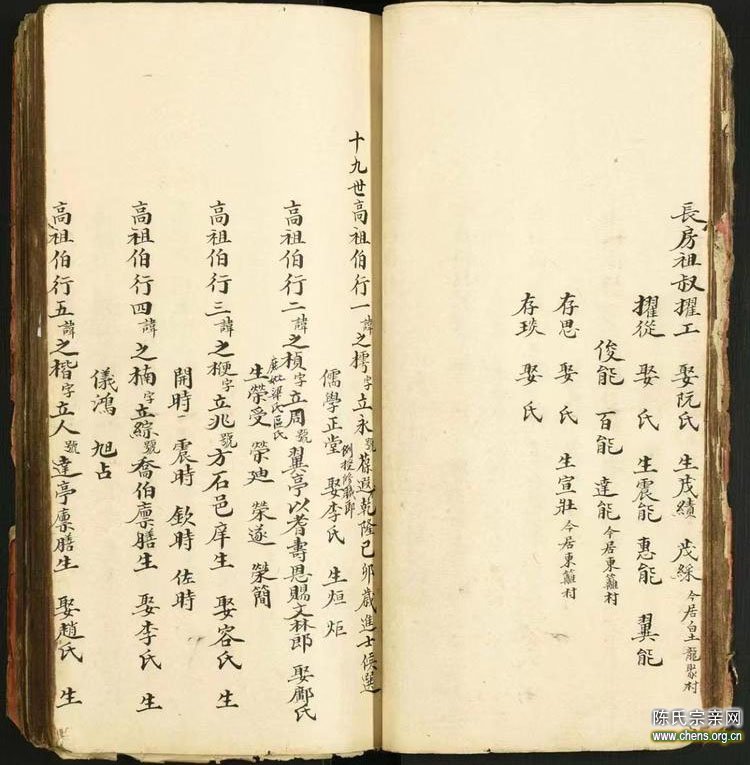 長房祖叔擢工 娶阮氏 生茂績 茂綵 今居白土龍聚村
擢從 娶 氏 生震能 惠能 翼能
俊能 百能 達能 今居東籬村
存思 娶 氏 生宣壯 今居東籬村
存琰 娶 氏
十九世高祖伯行一諱之樗字立永號葆遐乾隆己卯歲進士候選
儒學正堂 例授修職郎 娶李氏 生烜 炬
高祖伯行二諱之楨字立周號翼亭以耆壽恩賜文林郎 娶鄺氏
庶妣梁氏區氏
生榮受 榮廸 榮遂 榮簡
高祖伯行三諱之梗字立兆號方石邑庠生 娶容氏 生
開時 震時 欽時 佐時
高祖伯行四諱之楠字立綜號喬伯廩膳生 娶李氏 生
儀鴻 旭占
高祖伯行五諱之楷字立人號達亭廩膳生 娶趙氏 生
陈氏宗亲网
www.chens.org.cn